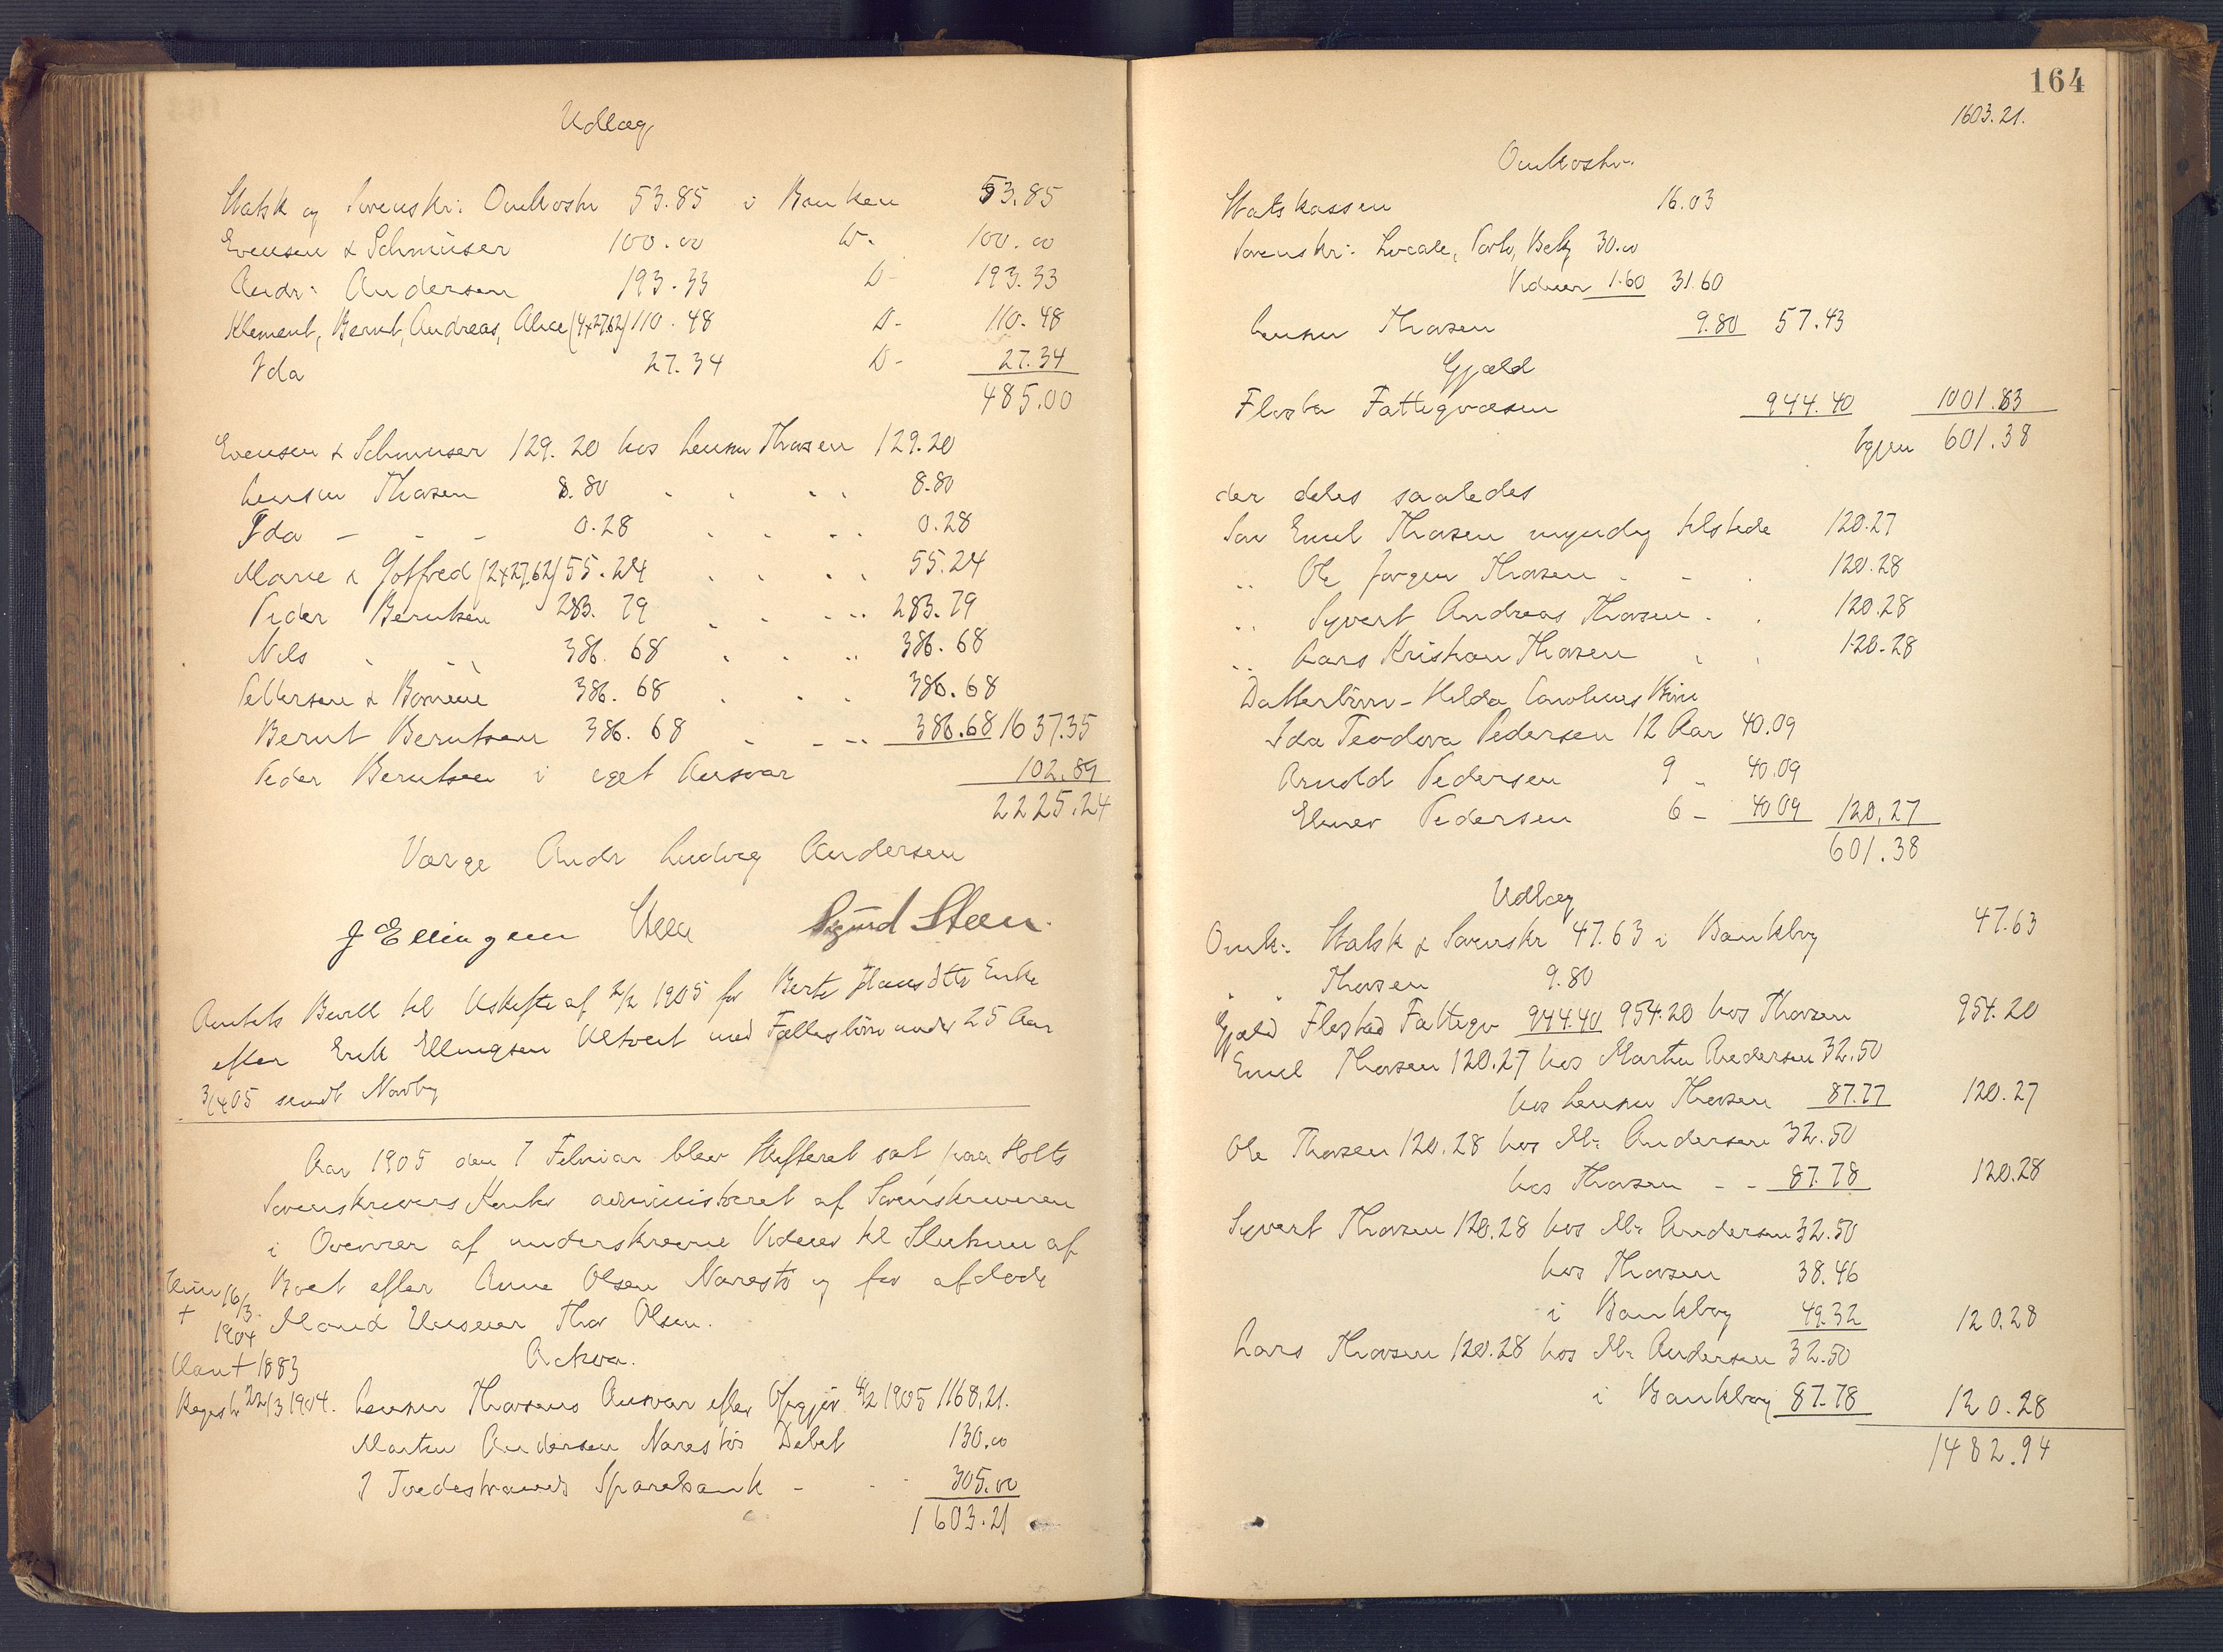 Udlæg
Statsk og Sorenskr: Omkostn 53.85 i Banken 53.85
Evensen & Schmüser 100.00 D- 100.00
Andr: Andersen 193.33 D- 193.33
Klement, Bernt, Andreas, Alice (4x27.62) 110.48 D- 110.48
Ida 27.34 D- 27.34
485.00
Evensen & Schmuser 129.20 hos Lensm Thorsen 129.20
Lensm Thorsen 8.80 8.80
Ida - - - 0.28 0.28
Marie & Gotfred (2x27.62) 55.24 55.24
Peder Berntsen 283.79 283.79
Nils 386.68 386.68
Pettersen & 386.68 386.68
Bernt Berntsen 386.68 386.68 1637.35
Peder Berntsen i eget Ansvar 102.89
2225.24
Værge Andr Ludvig Andersen
J Ellingsen Sigurd Steen.
Amtets Bevill til Uskifte af 2/2 1905 for Berte Enke
efter Erik Ellingsen med Fællesbörn under 25 Aar
3/4 05 sendt
Aar 1905 den 7 Februar blev Skifteret sat paa Holts
Sorenskrivers Kontor administreret af Sorenskriveren
i Overvær af underskrevne Vidner til Slutning af
Boet efter Anne Olsen Narestö og før afdöde
Mand Thor Olsen.
16/3
† 1904
† 1883
Registr 22/3 1904.
Activa.
Lensm Thorsens Ansvar efter Opgjör 4/2 1905 1168.21.
Martin Andersen Narestös Debet 130.00
I Tvedestrands Sparebank - 305.00
1603.21
164
1603.21.
Omkostn.
Statskassen 16.03
Sorenskr: Locale, Porto, Bekj 30.00
Vidner 1.60 31.60
Lensm Thorsen 9.80 57.43
Gjæld
Flosta Fattigvæsen 944.40 1001.83
Igjen 601.38
der deles saaledes
Sön Emil Thorsen myndig tilstede 120.27
" Ole Jörgen Thorsen - - 120.28
" Syvert Andreas Thorsen - . 120.28
" Lars Kristian Thorsen 120.28
Datterbörn - Hilda Carolines Börn
Ida Teodora Pedersen 12 Aar 40.09
Arnold Pedersen 9 - 40.09
Elmer Pedersen 6 - 40.09 120.27
601.38
Udlæg
Omk: Statsk & Sorenskr 47.63 i Bankbog 47.63
" " Thorsen 9.80
Gjæld Flostad Fattigv 944.40 954.20 hos Thorsen 954.20
Emil Thorsen 120.27 hos Martin Andersen 32.50
hos Lensm Thorsen 87.77 120.27
Ole Thorsen 120.28 hos M: Andersen 32.50
hos Thorsen - - 87.78 120.28
Syvert Thorsen 120.28 hos M: Andersen 32.50
hos Thorsen 38.46
i Bankbog 49.32 120.28
Lars Thorsen 120.28 hos M: Andersen 32.50
i Bankbog 87.78 120.28
1482.94